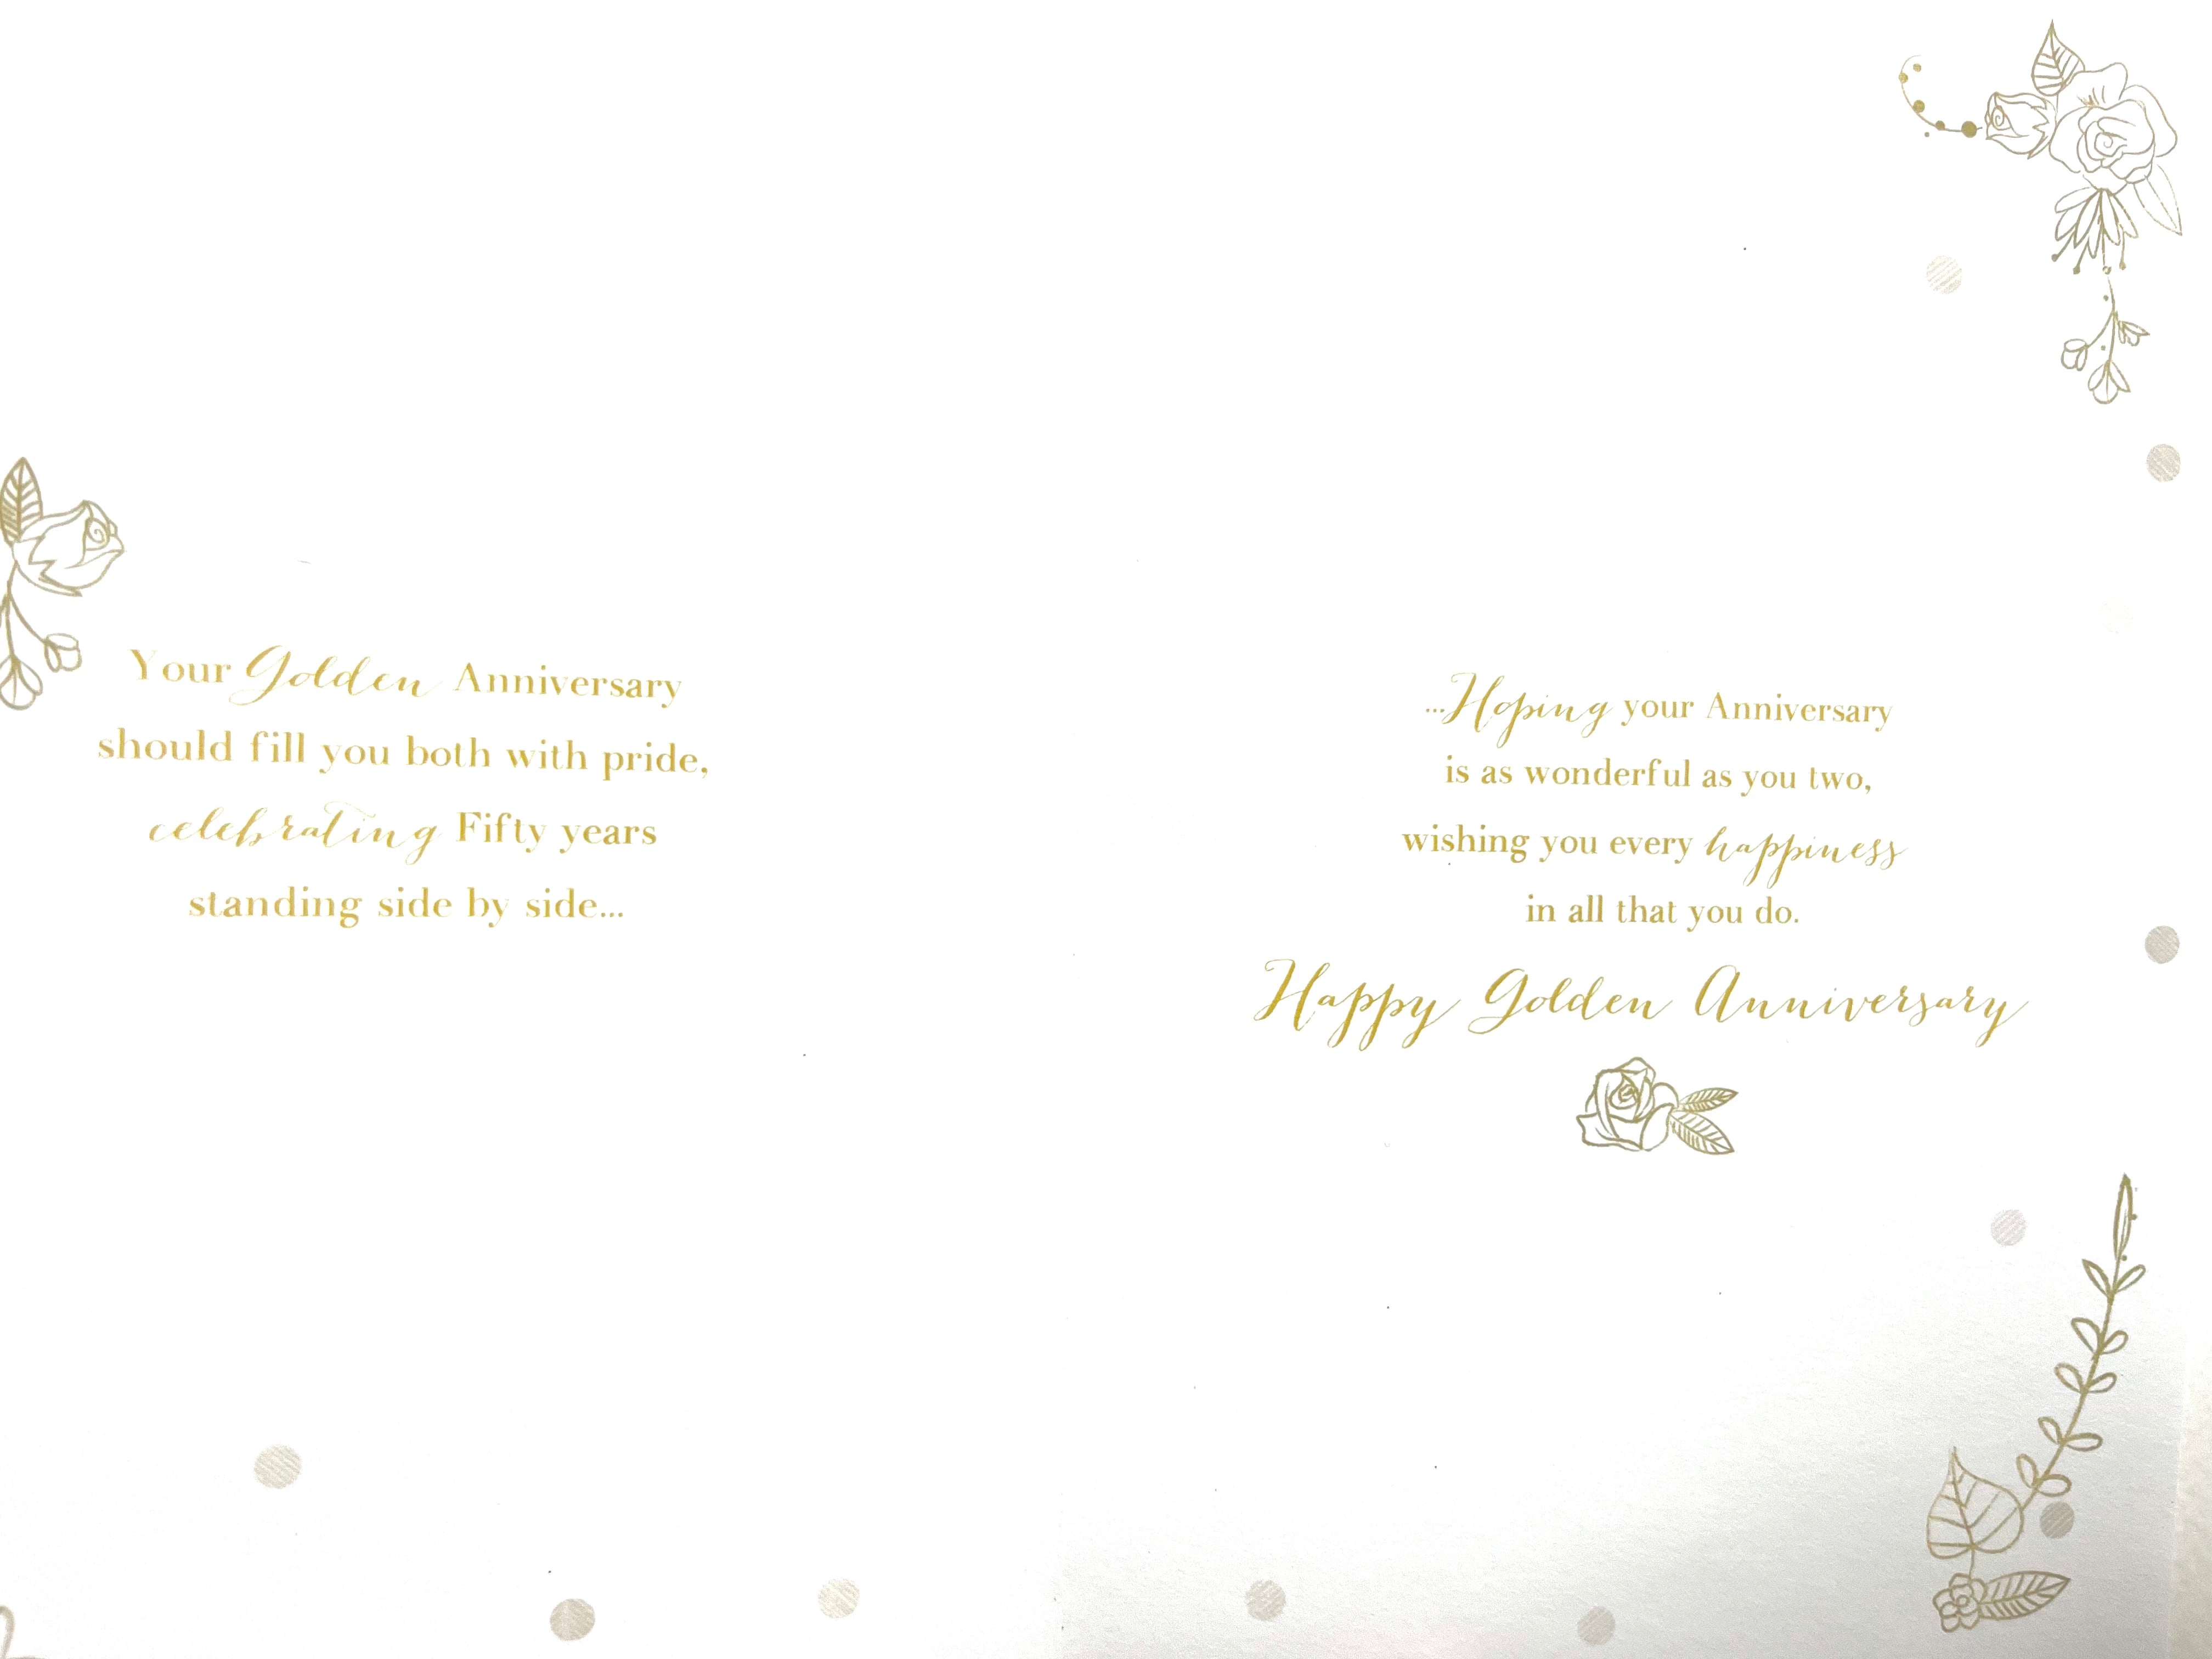 Your Golden Anniversary
should fill you both with pride,
celebrating Fifty years
standing side by side...
...Hoping your Anniversary
is as wonderful as you two,
wishing you every happiness
in all that you do.
Happy Golden Anniversary